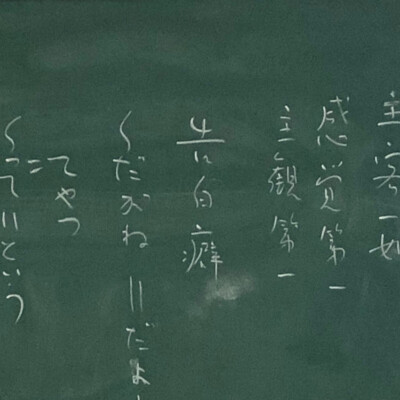 主客一如
感覚第一
主観第一
癖
〜だがね ||だよ
てやつ
〜って||という